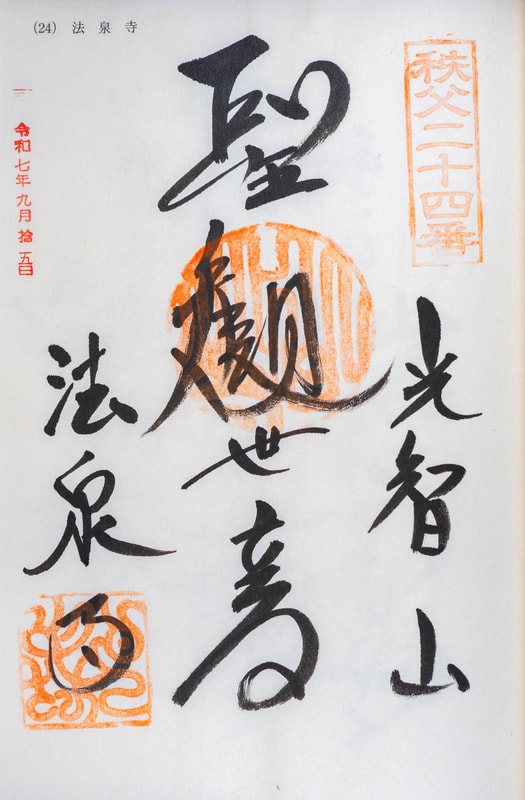 (24) 法泉寺
秩父二十四番
光智山
聖観世音
法泉寺
令和七年九月拾五日